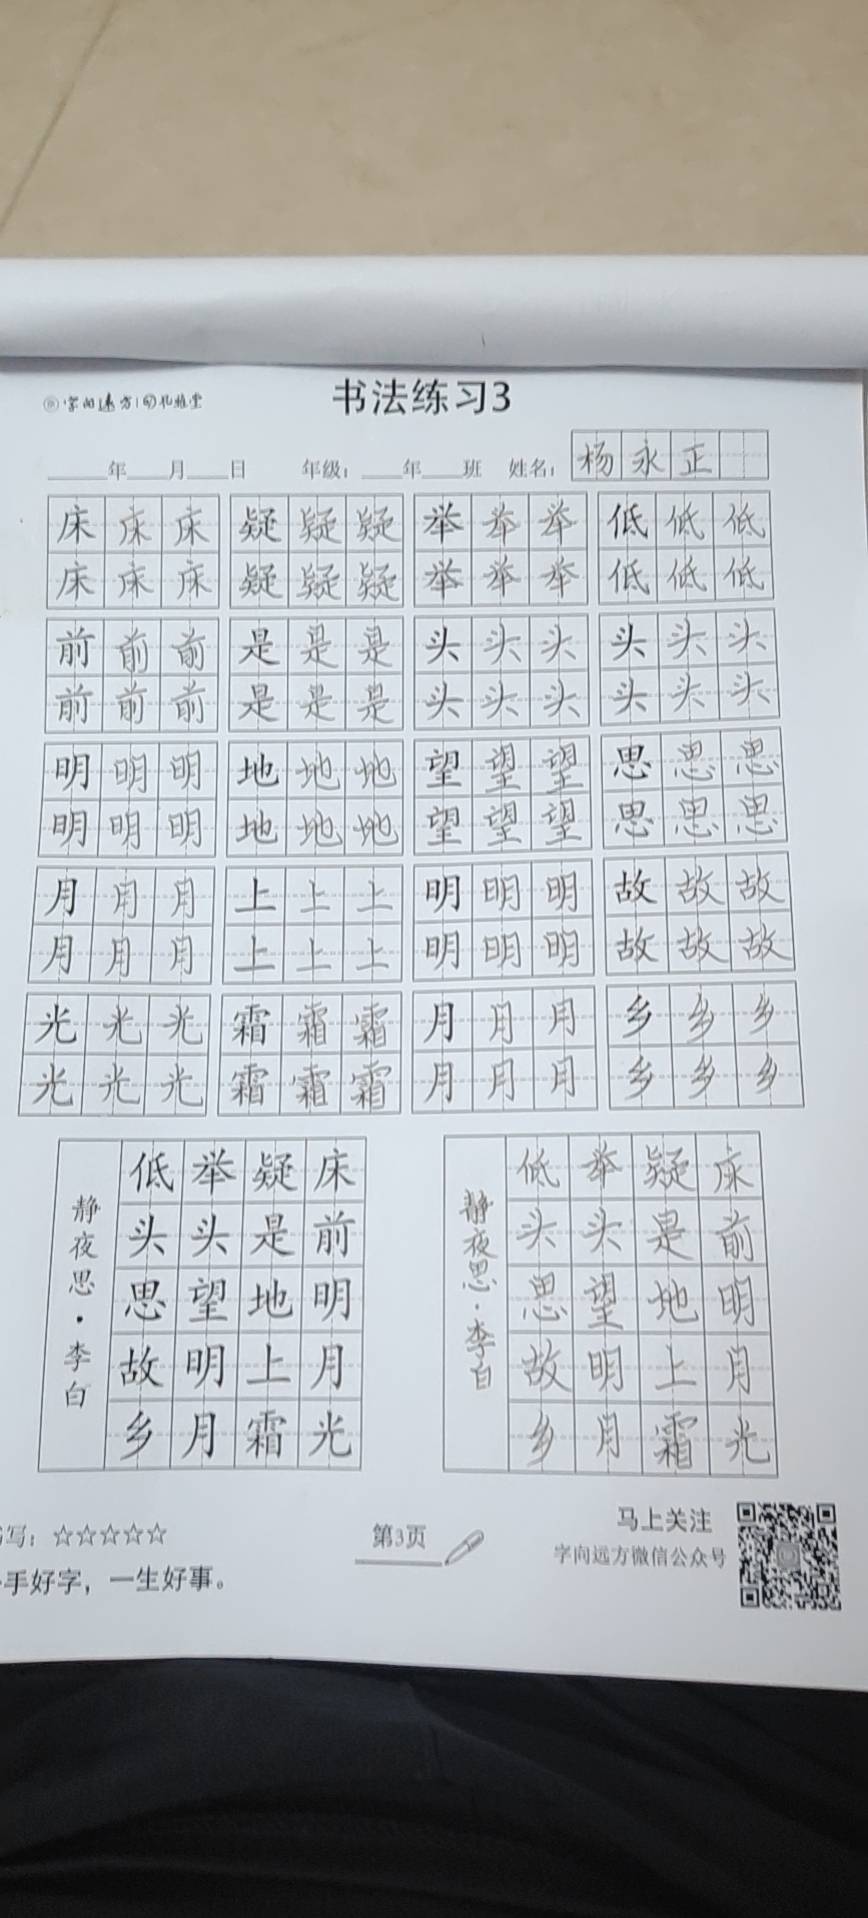 字向远方
书法练习3
____年____月____日 年级：____年____班 姓名：杨永正
床床床 疑疑疑 举举举 低低低
床床床 疑疑疑 举举举 低低低
前前前 是是是 头头头 头头头
前前前 是是是 头头头 头头头
明明明 地地地 望望望 思思思
明明明 地地地 望望望 思思思
月月月 上上上 明明明 故故故
月月月 上上上 明明明 故故故
光光光 霜霜霜 月月月 乡乡乡
光光光 霜霜霜 月月月 乡乡乡
床前明月光
疑是地上霜
举头望明月
低头思故乡
静夜思·李白
床前明月光
疑是地上霜
举头望明月
低头思故乡
静夜思·李白
写：☆☆☆☆☆
手好字，一生好事。
第3页
马上关注
字向远方微信公众号